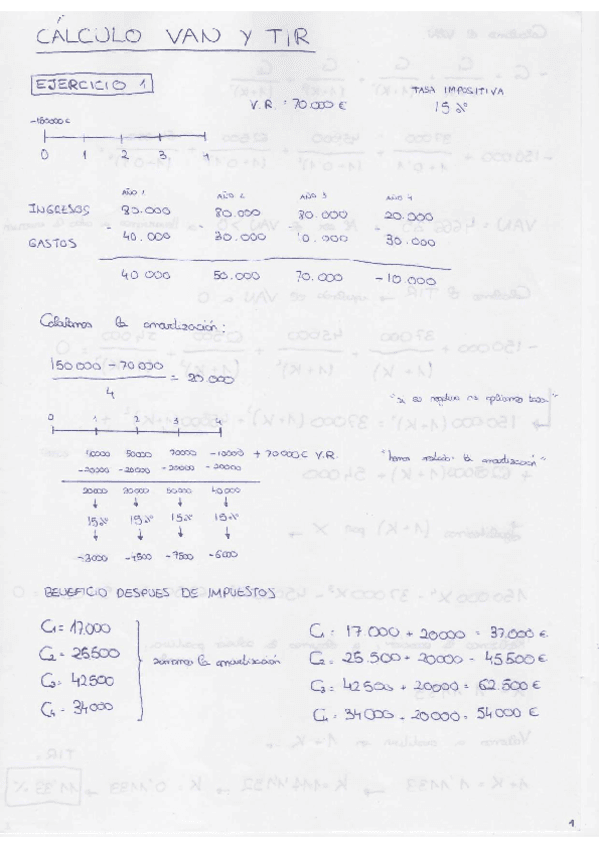 CÁLCULO VAN Y TIR
EJERCICIO 1
V.R. = 70.000 €
TASA IMPOSITIVA
15%
-150000€
0 1 2 3 4
AÑO 1 AÑO 2 AÑO 3 AÑO 4
INGRESOS 80.000 80.000 80.000 20.000
GASTOS - 40.000 - 30.000 - 10.000 - 30.000
40 000 50.000 70.000 -10.000
Calculamos la amortización:
150000 - 70000
4
= 20.000
"si es negativo no aplicamos tasa"
0 1 2 3 4
50000 70000 -10000 + 70000€ V.R.
"hemos restado la amortización"
-20000 -20000 -20000 -20000
20000 50000 40000
15% 15% 15% 15%
-3000 -4500 -7500 -6000
BENEFICIO DESPUES DE IMPUESTOS
C1 = 17.000
C2 = 25.500
C3 = 42500
C4 = 34000
sumamos la amortización
C1 = 17.000 + 20000 = 37.000 €
C2 = 25.500 + 20000 = 45500 €
C3 = 42500 + 20000 = 62.500 €
C4 = 34000 + 20000 = 54000 €
1